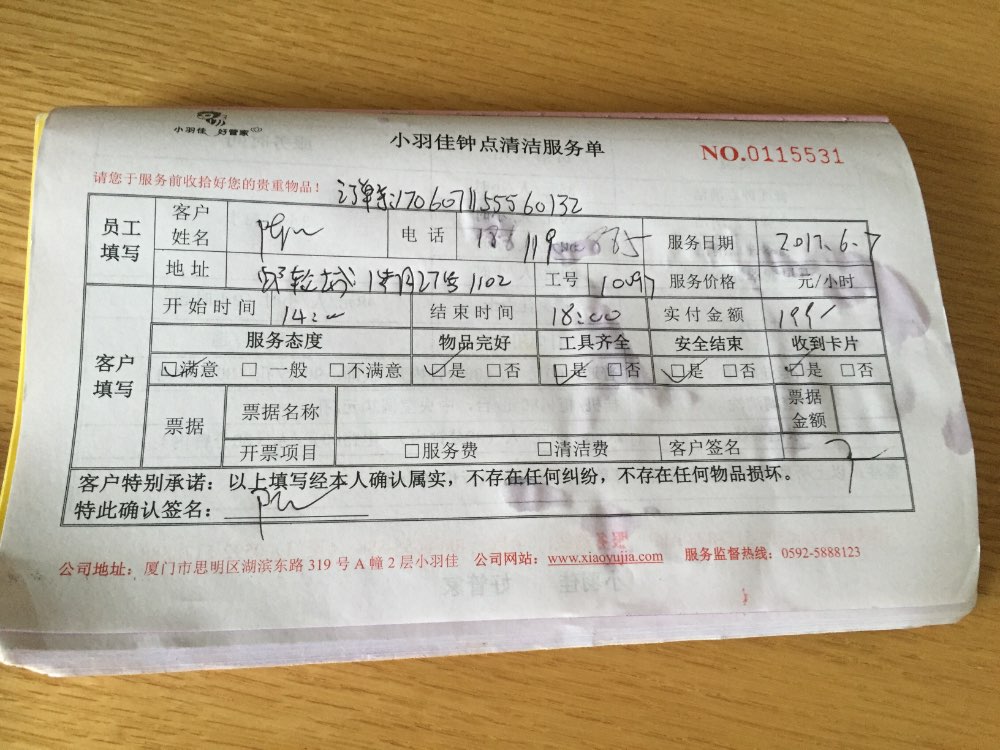 小羽佳 好管家
小羽佳钟点清洁服务单
NO.0115531
请您于服务前收拾好您的贵重物品！
订单号:17060711555560132
员工填写 客户姓名 电话 服务日期 2017.6.7
地址 1102 工号 10097 服务价格 元/小时
客户填写 开始时间 14:00 结束时间 18:00 实付金额 199
服务态度 物品完好 工具齐全 安全结束 收到卡片
☑满意 □一般 □不满意 ☑是 □否 ☑是 □否 ☑是 □否 ☑是 □否
票据 票据名称 票据金额
开票项目 □服务费 □清洁费 客户签名
客户特别承诺：以上填写经本人确认属实，不存在任何纠纷，不存在任何物品损坏。
特此确认签名：
公司地址：厦门市思明区湖滨东路 319 号 A 幢 2 层小羽佳 公司网站：www.xiaoyujia.com 服务监督热线：0592-5888123